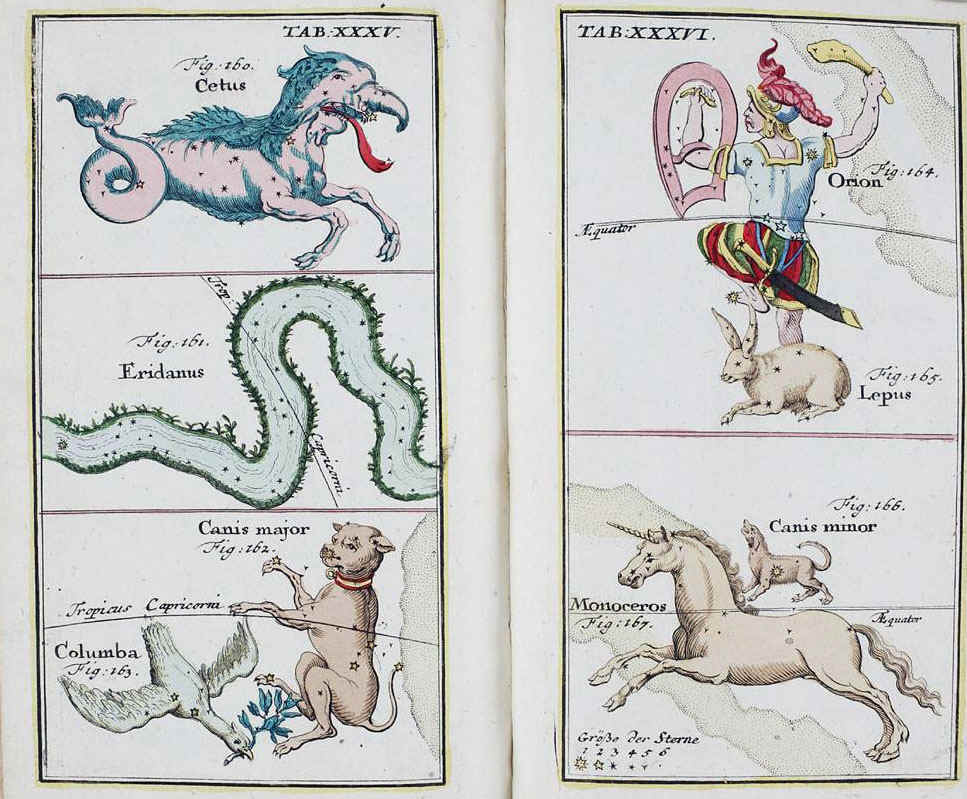 TAB:XXXV.
Fig: 160.
Cetus
Trop:
Fig: 161.
Eridanus
Capricorni
Canis major
Fig: 162.
Tropicus Capricorni
Columba
Fig: 163.
TAB:XXXVI.
Fig: 164.
Orion
Æquator
Fig: 165.
Lepus
Fig: 166.
Canis minor
Monoceros
Æquator
Fig: 167.
Größe der Sterne
1 2 3 4 5 6